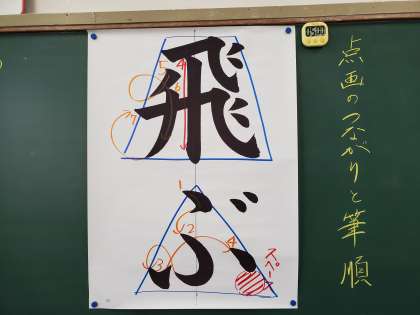 点画のつながりと筆順
飛ぶ
4
5
6
7
1
2
3
4
スペース